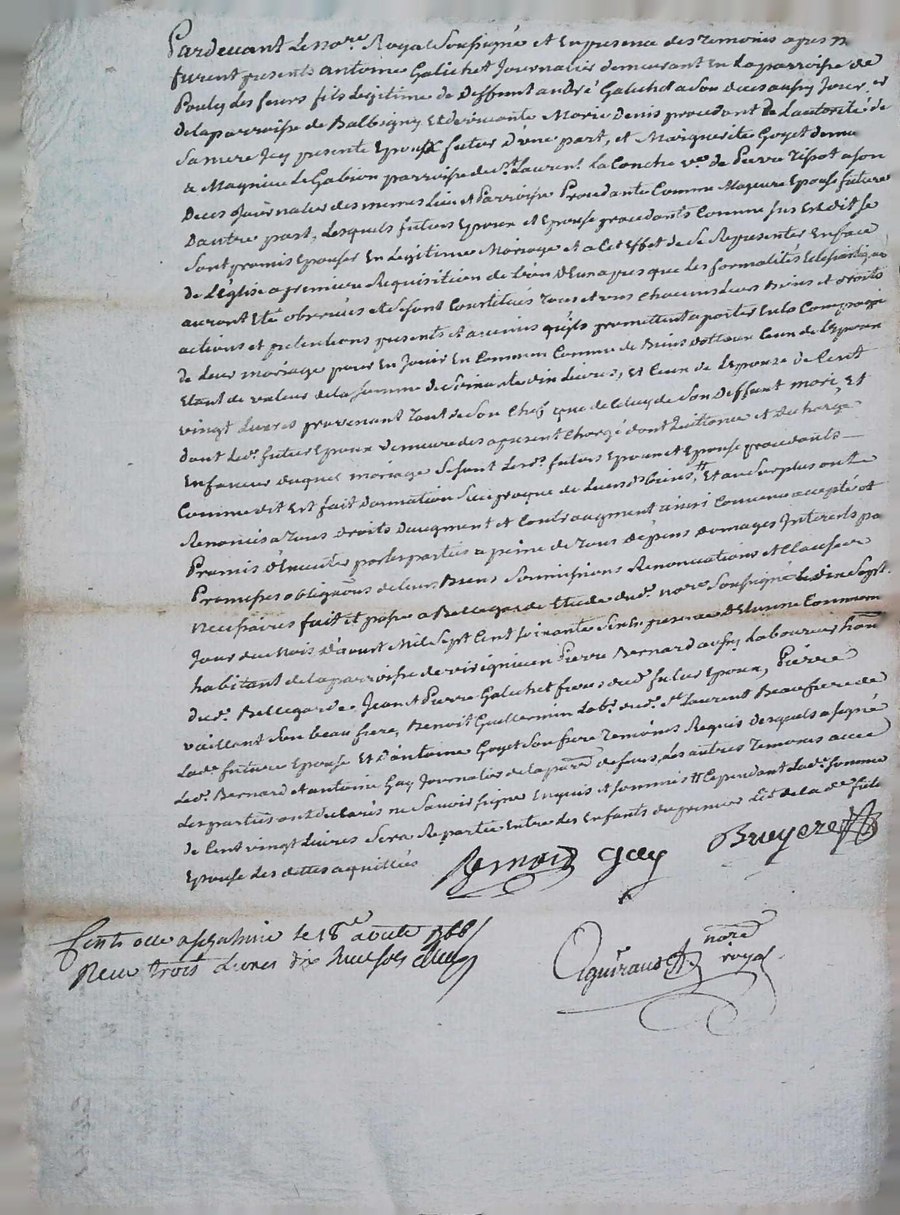 Pardevant Le nore. Royal Soussigné et En presence des Temoins apres n
furent presents antoine Galichet Journalier demeurant En La parroisse de
Pouly les feurs fils Legitime de Deffunt andré Galichet a Son deces aussy Jour. er
de la parroisse de Balbigny Et de vivante Marie Denis procedant de L'autorité de
Sa mere Icy presente Epoux futur d'une part, et Marguerite Goyet deme
a Magnieu Le Gabion parroisse de St Laurent La Conche ve. de Pierre Tissot a son
Deces Journalier des memes Lieu et Parroisse Procedante Comme Majeure Epouse future
Dautre part, Lesquels futurs Epoux et Epouse procedants Comme sus Est dit se
Sont promis Epouser En Legitime Mariage et a Cet Effet de se Representer En face
de L'Eglise a premiere Requisition de L'un D'Eux apres que Les formalités Eclesiastiques
auront Eté observées et se sont Constitués Tous et uns Chacuns Leurs Biens et droits
actions et pretentions presents et avenirs qu'ils promettent aporter En La Compagnie
de Leur mariage pour En Jouir En Commun Comme de Biens dotaux Ceux de L'Epoux
Etant de valeur de la somme de Livres, et Ceux de L'Epouze de Cent
vingt Livres provenant Tant de Son Chef que de Celuy de Son Deffunt mari, Et
dont Led. futur Epoux demeure des apresent Chargé dont quittance et decharge
En faveur duquel mariage Se sont Lesd. futurs Epoux et Epouse procedants
Comme dit Est fait donnation Reciproque de Leursd. biens, Et au Surplus ont
Renoncés a Tous droits d'augment et Contraugment ainsi Convenu accepté et
Promis d'Executer par les parties a peine de Tous depens domages Interests pa
Promesses obligaons de Leurs Biens Soumissions Renonciations et Clauses
necessaires fait et passé a Bellegarde Etude dud. nore. Soussigné Le dix Sept.
Jour du Mois d'aoust Mil Sept Cent Soixante huit, presence D'Etienne
habitant de La parroisse de Pierre Bernard aussy Laboureur
dud. Bellegarde Jean et Pierre Galichet freres dud. futur Epoux, Pierre
vaillant Son beau frere, Benoit Guillermin Labr. dud. St. Laurent Beaufrere de
Lade. future Epouse Et d'antoine Goyet Son frere Temoins Requis desquels a signé
Led. Bernard et antoine Gay Journalier de la parse. de feurs, Les autres Temoins avec
Les parties ont declarés ne Savoir signer Enquis et sommés Cependant Lade. somme
de Cent vingt Livres Sera Repartie Entre Les Enfants du premier Lit de la de. futu
Epouse Les dettes aquittées
Bernard Gay Bruyere
Contr olle a le 18e aoust 1768
Receu trois Livres dix huit sols
Aguiraud nore royal